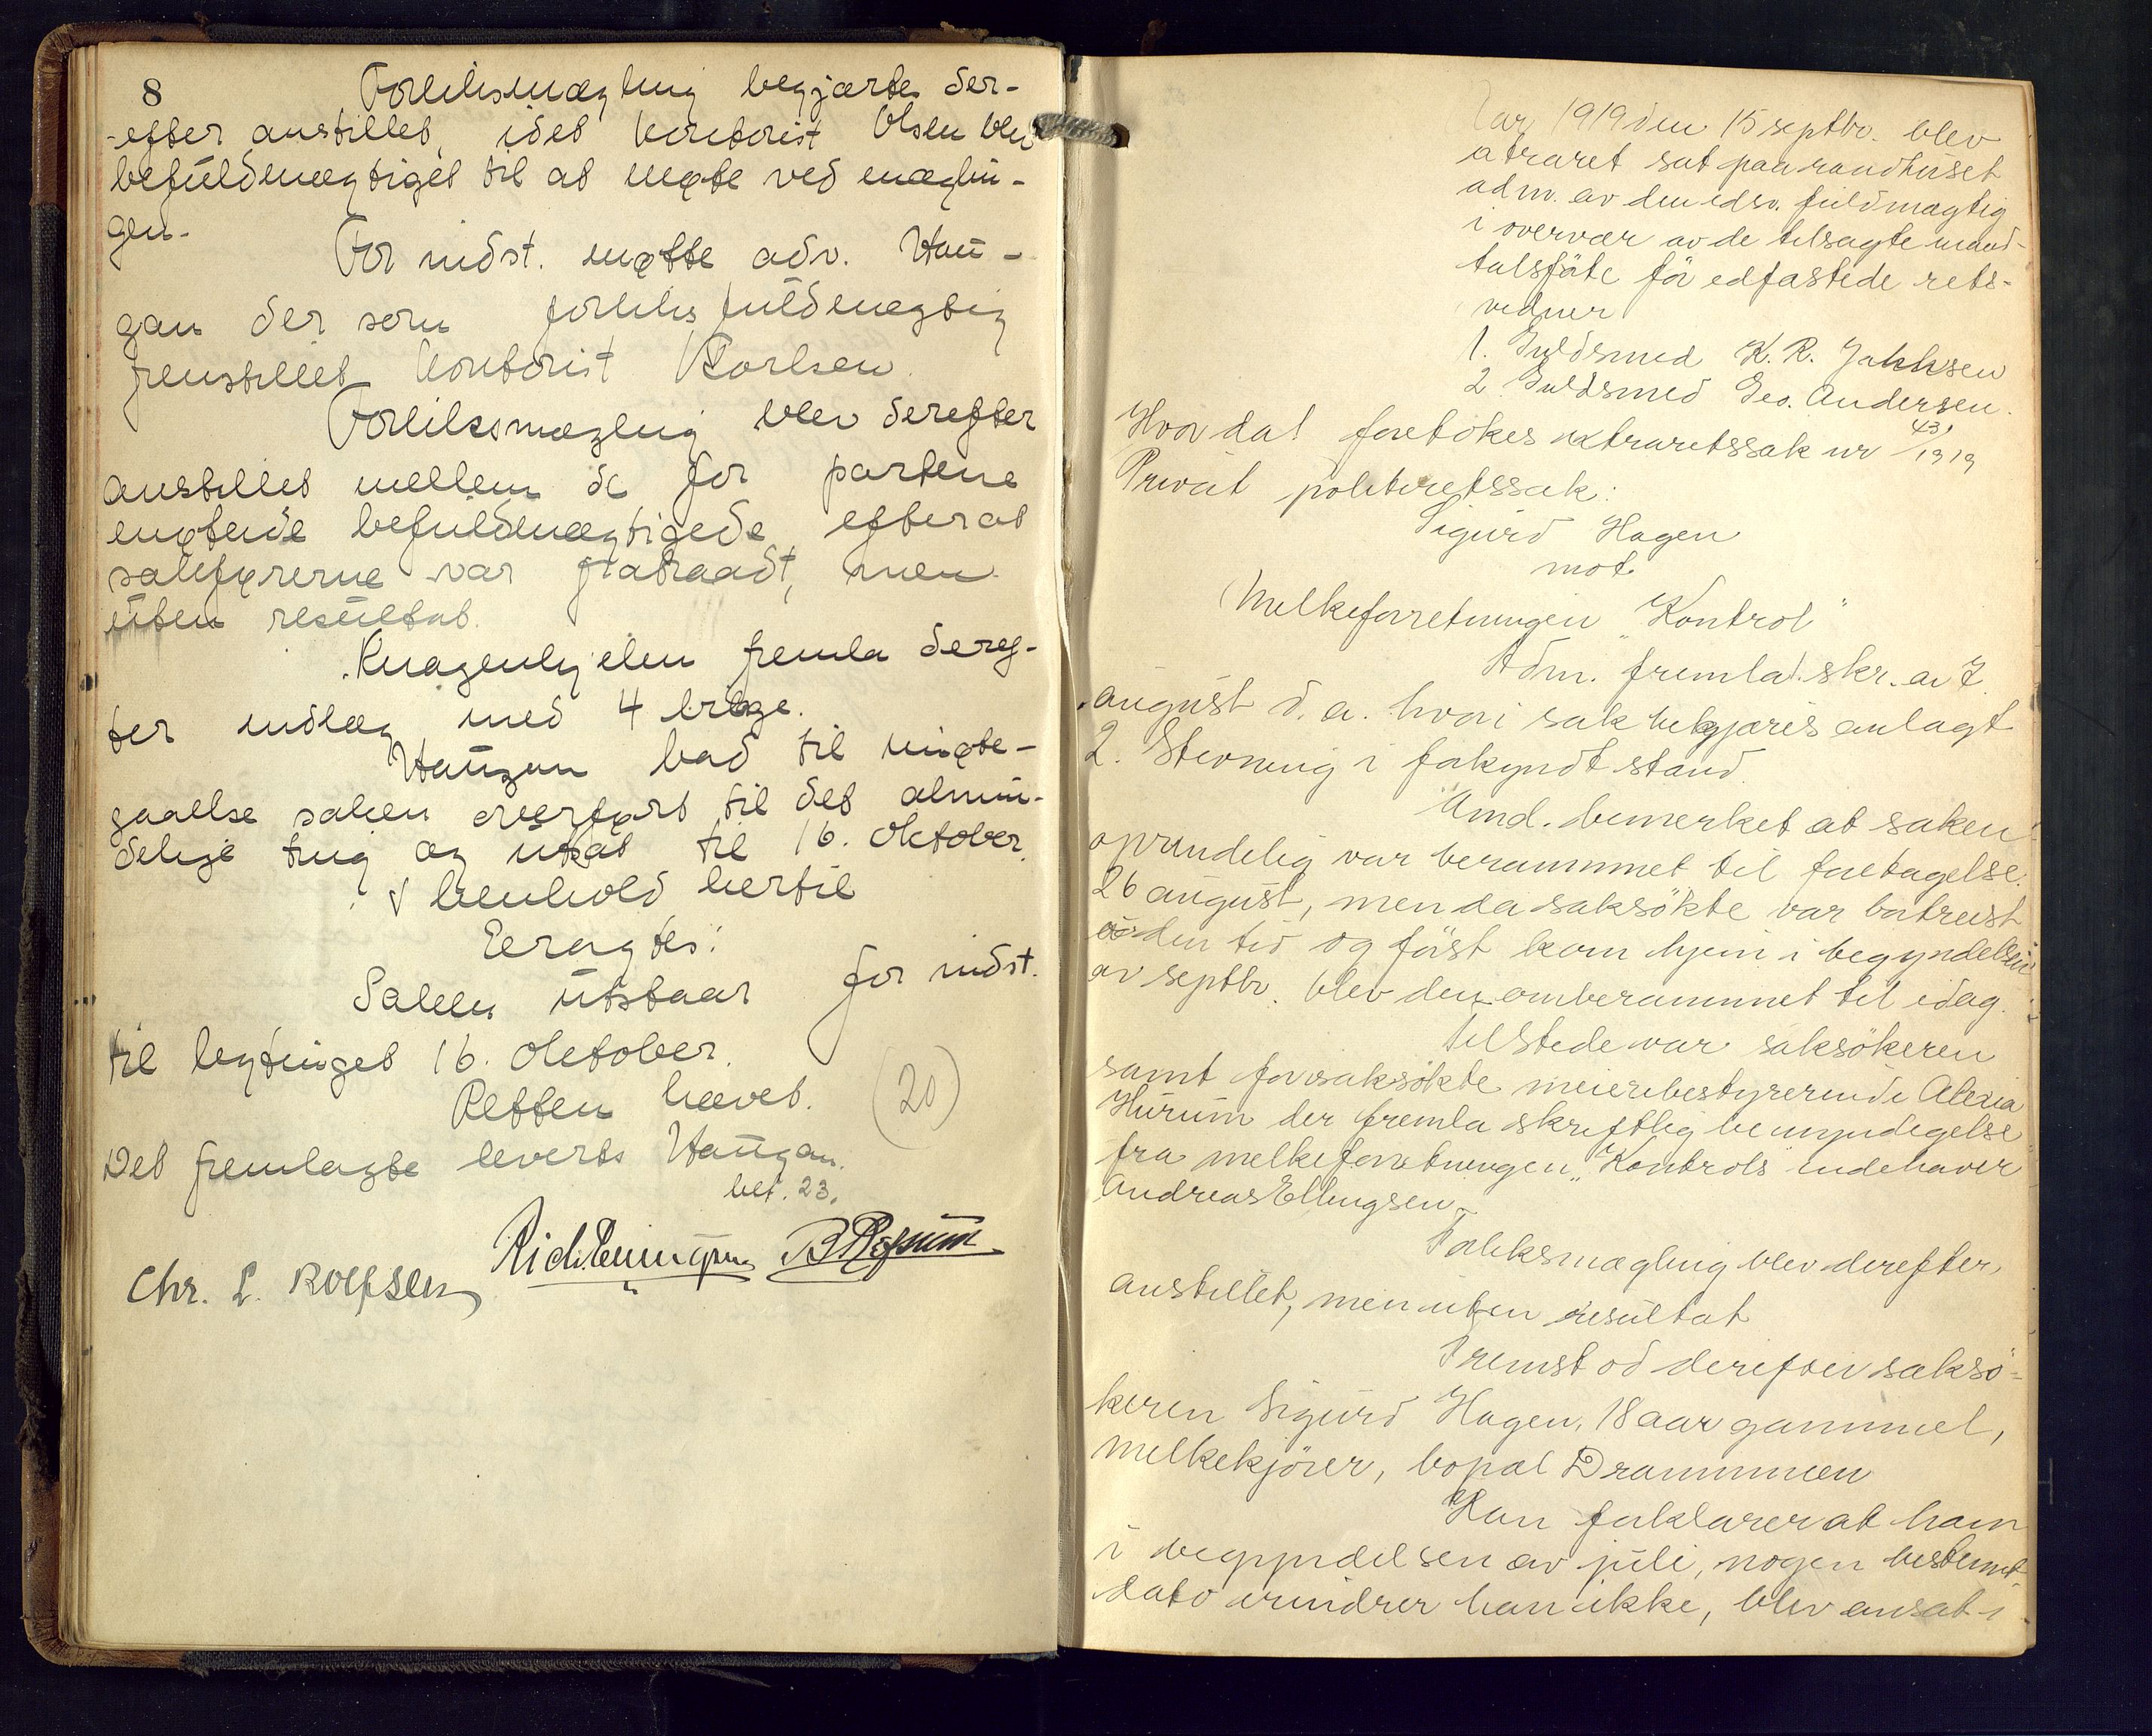 8
Forliksmægling begjærtes der-
-efter anstillet, idet kontorist Olsen blev
befuldmægtiget til at møte ved mæglin-
gen.
For indst. møtte adv. Hau-
gan der som forliksfuldmægtig
fremstillet kontorist Karlsen.
Forliksmægling blev derefter
anstillet mellem de for partene
møtende befuldmægtigede efterat
sakførerne var fratraadt, men
uten resultat.
Knagenhjelm fremla deref-
ter indlæg med 4 bilage.
Haugan bad til imøte-
gaaelse saken overført til det almin-
delige ting og utsat til 16. oktober.
I henhold hertil
Eragtes:
Saken utstaar for indst.
til bytinget 16. oktober.
Retten hævet.
(20)
Det fremlagte leverts Haugan.
bet. 23.
Chr. L. Rolfsen
Aar 1919 den 15 septbr. blev
xtraret sat paa raadhuset
adm. av den edsv. fuldmægtig
i overvær av de tilsagte mand-
talsførte før edfæstede rets-
vidner
1. Guldsmed K. R. Jakksen
2. Guldsmed Geo. Andersen.
Hvorda! foretokes extraretssak nr 43/1919
Privat politiretssak:
Sigurd Hagen
mot
Melkeforretningen "Kontrol"
Adm. fremla 1. skr. av 7.
august d. a. hvori sak bekgjæres anlagt
2. Stevning i forkyndt stand.
Amd. bemerket at saken
oprindelig var berammet til foretagelse
26 august, men da saksøkte var bortreist
den tid og først kom hjem i begyndelsen
av septbr. blev den omberammet til idag.
Tilstede var saksøkeren
samt for saksøkte meieribestyrerinde Alexia
Hurum der fremla skriftlig bemyndigelse
fra melkeforretningen "Kontrols" indehaver
Andreas Ellingsen.
Forliksmægling blev derefter
anstillet, men uten resultat
Fremstod derefter saksø-
keren Sigurd Hagen, 18 aar gammel,
melkekjører, bopæl Drammen
Han forklarer at han
i begyndelsen av juli, nogen bestemt
dato erindrer han ikke, blev ansat i